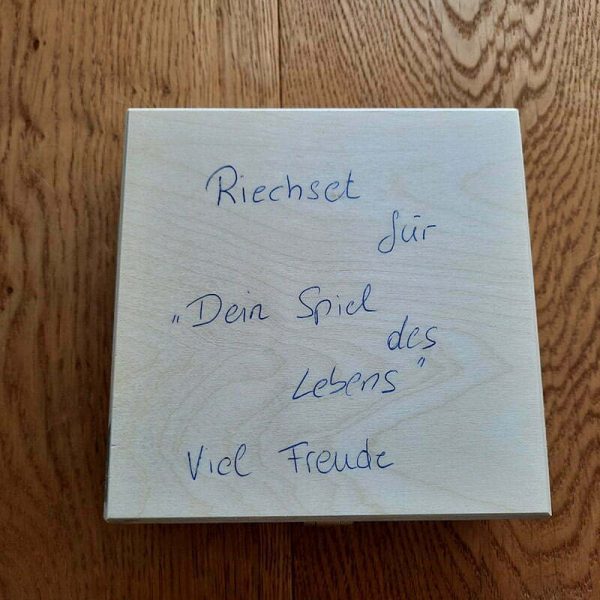 Riechset
für
„Dein Spiel
des
Lebens"
Viel Freude